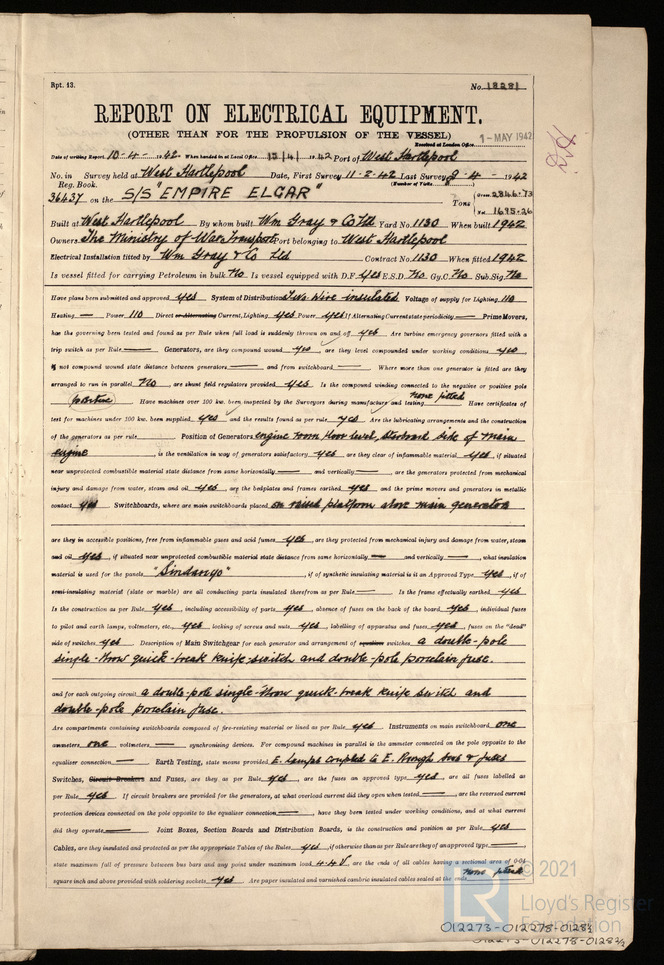 Rpt. 13.
No. 18281
REPORT ON ELECTRICAL EQUIPMENT.
(OTHER THAN FOR THE PROPULSION OF THE VESSEL)
Received at London Office 1 - MAY 1942
Date of writing Report 10-4- 1942. When handed in at Local Office 13/4/ 1942 Port of West Hartlepool
No. in Survey held at West Hartlepool Date, First Survey 11-2-42 Last Survey 9-4- 1942
Reg. Book. (Number of Visits
36437 on the S/S "EMPIRE ELGAR" Tons Gross 2846.73
Net 1695.26
Built at West Hartlepool By whom built Wm Gray & Co Ltd Yard No. 1130 When built 1942
Owners The Ministry of War Transport Port belonging to West Hartlepool
Electrical Installation fitted by Wm Gray & Co Ltd Contract No. 1130 When fitted 1942
Is vessel fitted for carrying Petroleum in bulk No Is vessel equipped with D.F. Yes E.S.D. No Gy.C. No Sub.Sig. No
Have plans been submitted and approved yes System of Distribution Two Wire insulated Voltage of supply for Lighting 110
Heating — Power 110 Direct or Alternating Current, Lighting yes Power yes If Alternating Current state periodicity — Prime Movers,
has the governing been tested and found as per Rule when full load is suddenly thrown on and off yes Are turbine emergency governors fitted with a
trip switch as per Rule — Generators, are they compound wound yes, are they level compounded under working conditions yes,
if not compound wound state distance between generators — and from switchboard — Where more than one generator is fitted are they
arranged to run in parallel No, are shunt field regulators provided yes Is the compound winding connected to the negative or positive pole
positive Have machines over 100 kw. been inspected by the Surveyors during manufacture and testing None fitted Have certificates of
test for machines under 100 kw. been supplied yes and the results found as per rule yes Are the lubricating arrangements and the construction
of the generators as per rule Position of Generators engine room floor level, starboard side of main
engine is the ventilation in way of generators satisfactory yes are they clear of inflammable material yes, if situated
near unprotected combustible material state distance from same horizontally — and vertically —, are the generators protected from mechanical
injury and damage from water, steam and oil yes, are the bedplates and frames earthed yes and the prime movers and generators in metallic
contact yes Switchboards, where are main switchboards placed on raised platform above main generators
are they in accessible positions, free from inflammable gases and acid fumes yes, are they protected from mechanical injury and damage from water, steam
and oil yes, if situated near unprotected combustible material state distance from same horizontally — and vertically —, what insulation
material is used for the panels "Sindanyo", if of synthetic insulating material is it an Approved Type yes, if of
semi-insulating material (slate or marble) are all conducting parts insulated therefrom as per Rule — Is the frame effectually earthed yes
Is the construction as per Rule yes, including accessibility of parts yes, absence of fuses on the back of the board yes, individual fuses
to pilot and earth lamps, voltmeters, etc., yes locking of screws and nuts yes, labelling of apparatus and fuses yes, fuses on the "dead"
side of switches yes Description of Main Switchgear for each generator and arrangement of equaliser switches, a double-pole
single-throw quick-break knife switch and double-pole porcelain fuse.
and for each outgoing circuit a double-pole single-throw quick-break knife switch and
double-pole porcelain fuse.
Are compartments containing switchboards composed of fire-resisting material or lined as per Rule yes Instruments on main switchboard one
ammeters one voltmeters — synchronising devices. For compound machines in parallel is the ammeter connected on the pole opposite to the
equaliser connection — Earth Testing, state means provided E. Lamps coupled to E. through & fuses
Switches, Circuit Breakers and Fuses, are they as per Rule yes, are the fuses an approved type yes, are all fuses labelled as
per Rule yes If circuit breakers are provided for the generators, at what overload current did they open when tested —, are the reversed current
protection devices connected on the pole opposite to the equaliser connection —, have they been tested under working conditions, and at what current
did they operate — Joint Boxes, Section Boards and Distribution Boards, is the construction and position as per Rule yes
Cables, are they insulated and protected as per the appropriate Tables of the Rules yes, if otherwise than as per Rule are they of an approved type —,
state maximum fall of pressure between bus bars and any point under maximum load 4.4 V, are the ends of all cables having a sectional area of 0.04
square inch and above provided with soldering sockets yes Are paper insulated and varnished cambric insulated cables sealed at the ends None fitted
© 2021
LR
Lloyd's Register
Foundation
012273-012278-0128½